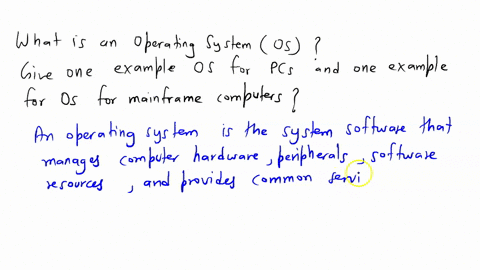 What is an Operating System (OS) ?
Give one example OS for PCs and one example
for OS for mainframe computers ?
An operating system is the system software that
manages computer hardware, peripherals, software
resources, and provides common servi